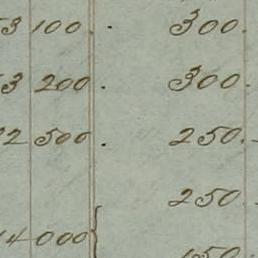 3 100 . 300.
3 200 . 300.
2 500 . 250.
250.
4 000
150.